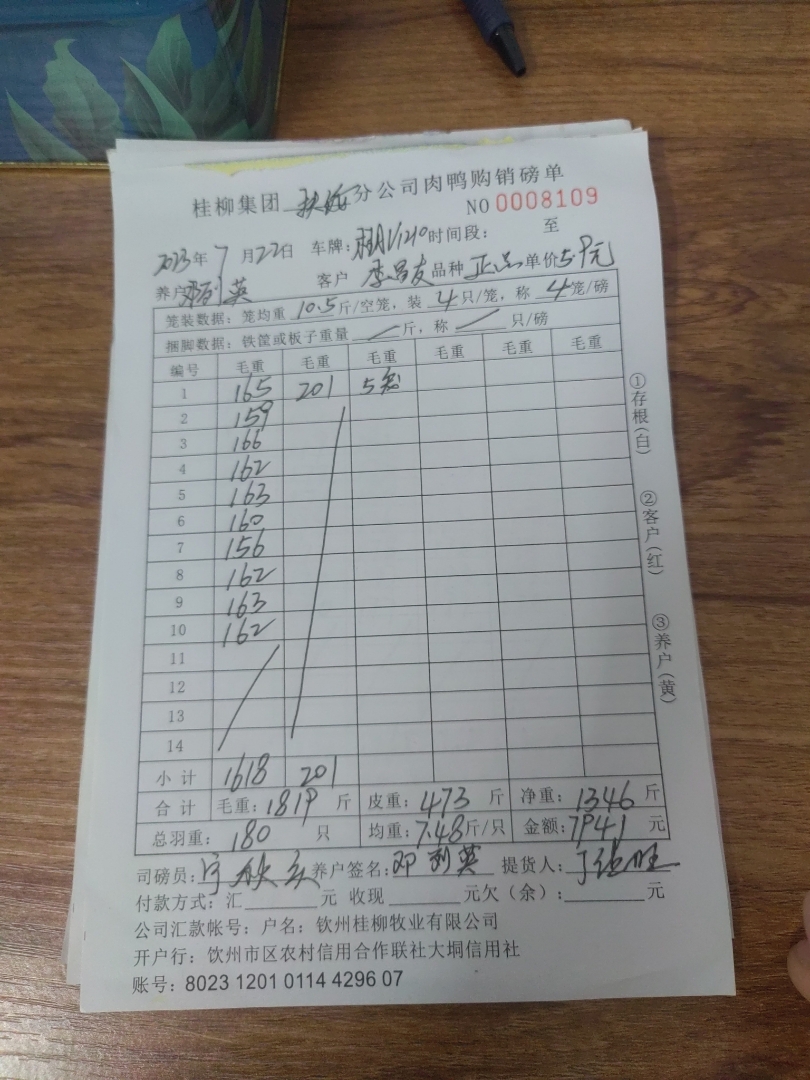 桂柳集团 分公司肉鸭购销磅单
NO 0008109
2023年 7月22日 车牌: 时间段: 至
养户 英 客户 李昌友 品种 正品 单价 5.9元
笼装数据：笼均重 10.5 斤/空笼，装 4 只/笼，称 4 笼/磅
捆脚数据：铁筐或板子重量 / 斤，称 / 只/磅
编号 毛重 毛重 毛重 毛重 毛重 毛重
1 165 201 5笼
2 159
3 166
4 162
5 163
6 160
7 156
8 162
9 163
10 162
11
12
13
14
小计 1618 201
合计 毛重: 1819 斤 皮重: 473 斤 净重: 1346 斤
总羽重: 180 只 均重: 7.48 斤/只 金额: 7941 元
司磅员: 养户签名: 邓 英 提货人:
付款方式: 汇 元 收现 元欠（余）: 元
公司汇款帐号: 户名: 钦州桂柳牧业有限公司
开户行: 钦州市区农村信用合作联社大垌信用社
账号: 8023 1201 0114 4296 07
①存根(白) ②客户(红) ③养户(黄)